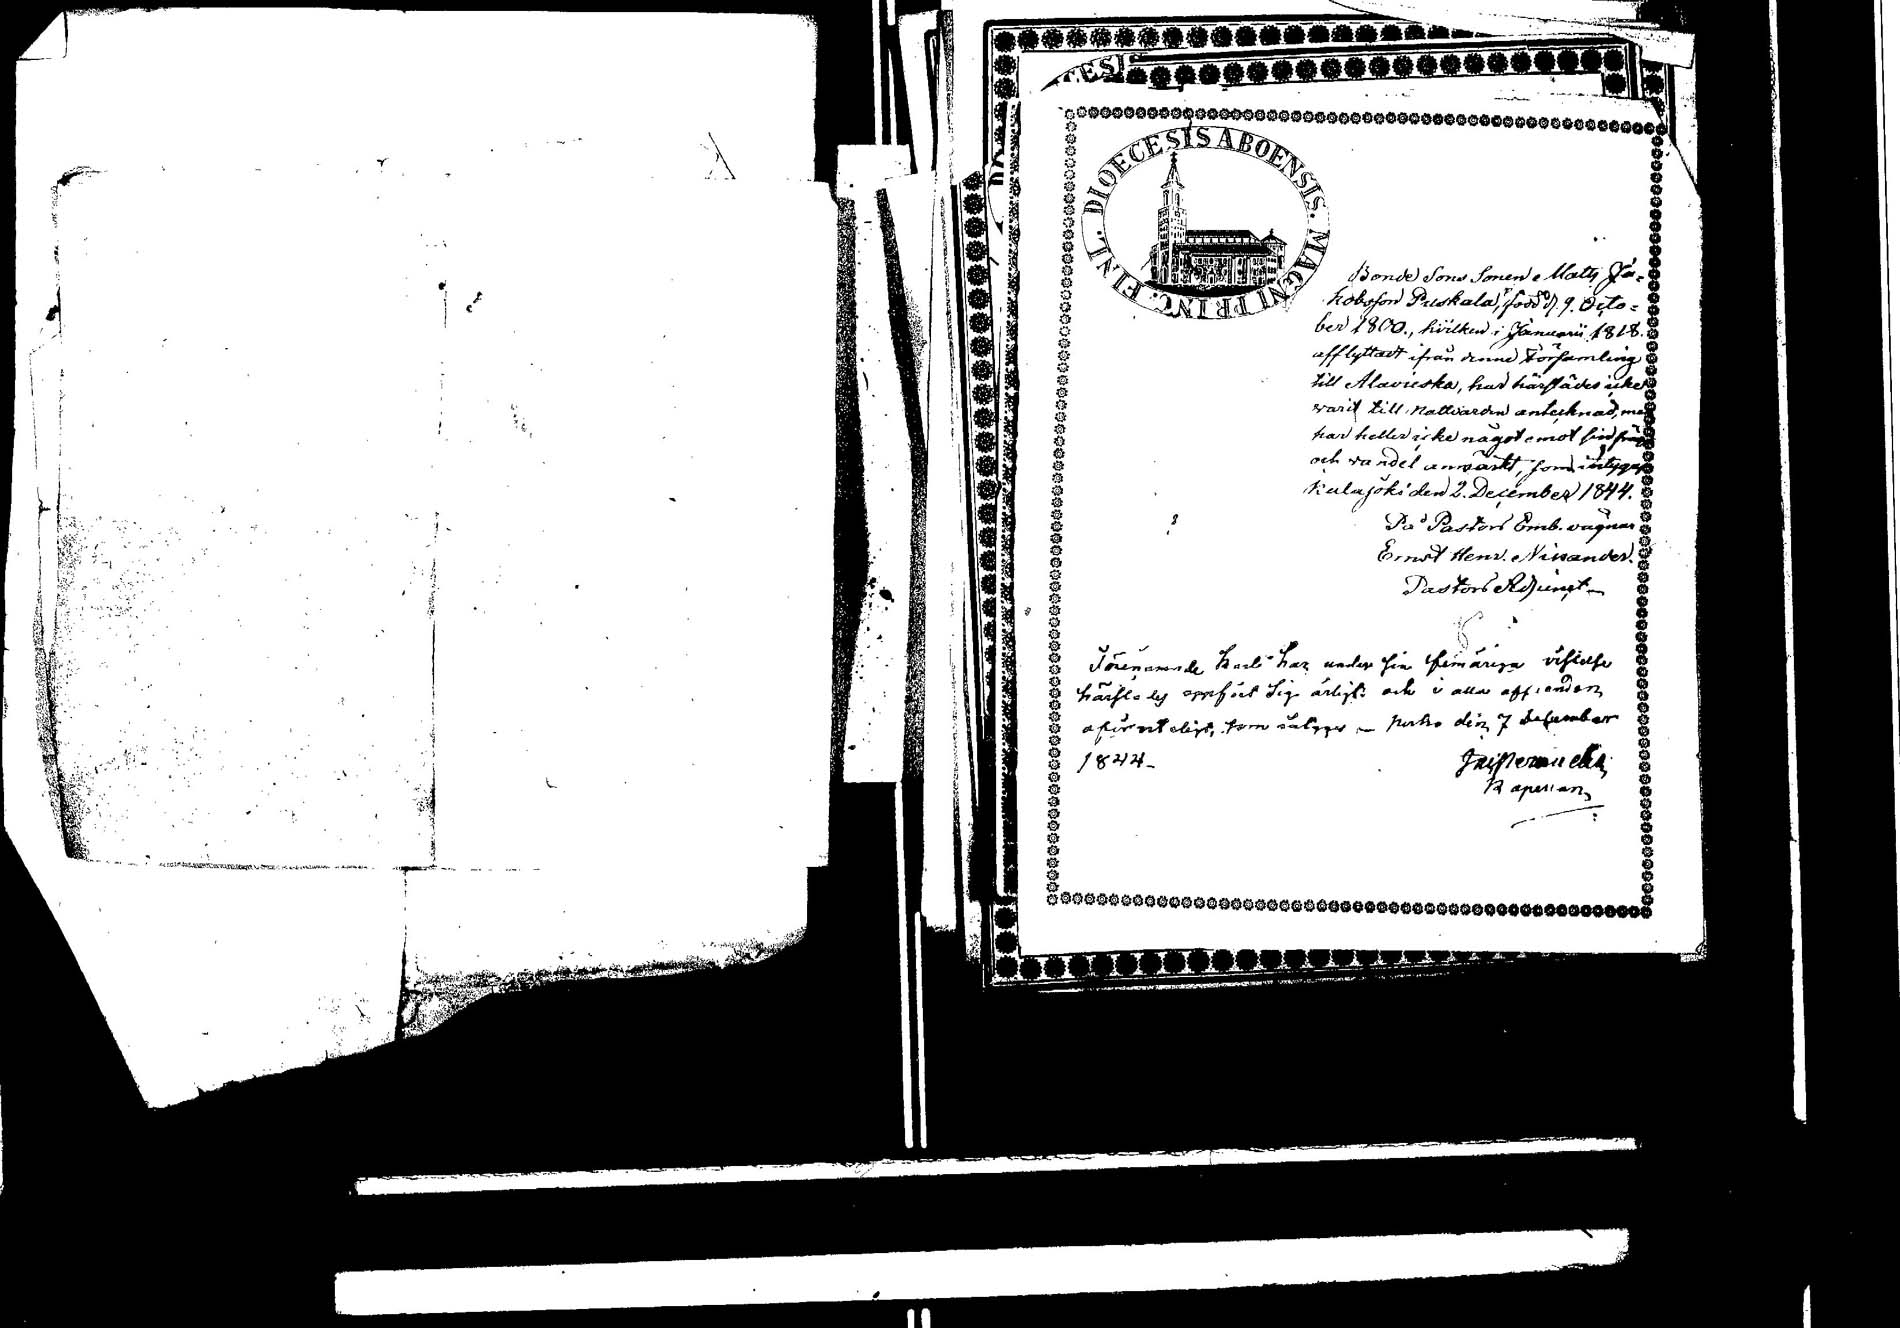 DIOECESIS ABOENSIS. MAGNI PRINC. FINL.
Bonde Sons Sonen Matts Ja-
kobsson Puskala, född d. 9. Octo-
ber 1800., hvilken i Januarii 1818.
afflyttadt ifrån denne Församling
till Alavieska, har härstädes icke
warit till Nattvarden antecknad, men
har heller icke något emot sin fräjd
och vandel anmärkt, som intygas
Kalajoki den 2. December 1844.
På Pastors Emb. vägnar
Ernst Henr. Nissander.
Pastors Adjunct
Förenämnde Karl har under sin femåriga vistelse
härstädes uppfört sig ärligt och i alla afseenden
oförviteligt, som intygas den 7 December
1844
Kapellan